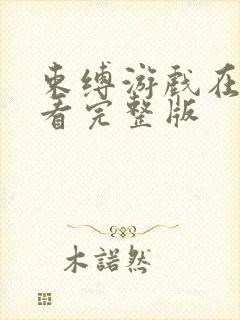 束缚游戏在
看完整版
木諾然